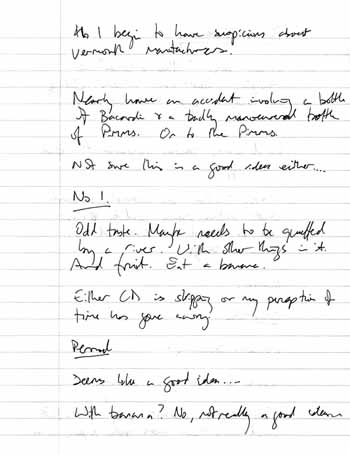 I begin to have suspicions about
vermouth manufacturers.
Nearly have an accident involving a bottle
of Bacardi & a badly manoeuvered bottle
of Pimms. On to the Pimms.
Not sure this is a good idea either....
No 1.
Odd taste. Maybe needs to be quaffed
by a river. With other things in it.
And fruit. Eat a banana.
Either CD is skipping or my perception of
time has gone wrong
Pernod
Seems like a good idea....
With banana? No, not really a good idea